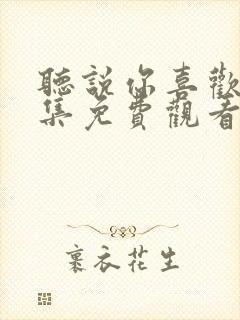 聽說你喜歡
集免費觀看
裹衣花生